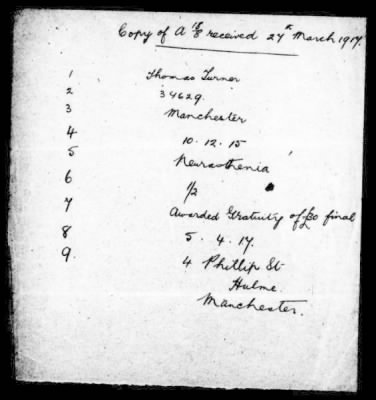 Copy of A 173 received 27th March 1917.
1 Thomas Turner
2 34629.
3 Manchester
4 10.12.15
5 Neurasthenia
6 1/2
7 Awarded Gratuity of £30 final
8 5.4.17.
9. 4 Phillip St
Hulme.
Manchester.